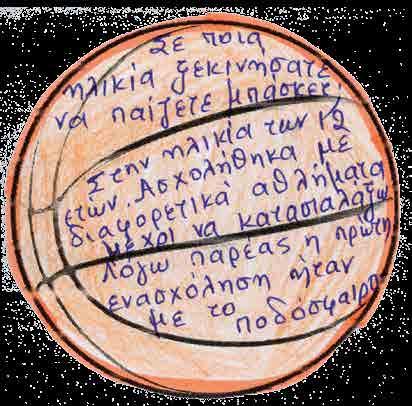 Σε ποια
ηλικία ξεκινήσατε
να παίζετε μπάσκετ;
Στην ηλικία των 12
ετών. Ασχολήθηκα με
διαφορετικά αθλήματα
μέχρι να κατασταλάξω
Λόγω παρέας η πρώτη
ενασχόληση ήταν
με το ποδόσφαιρο